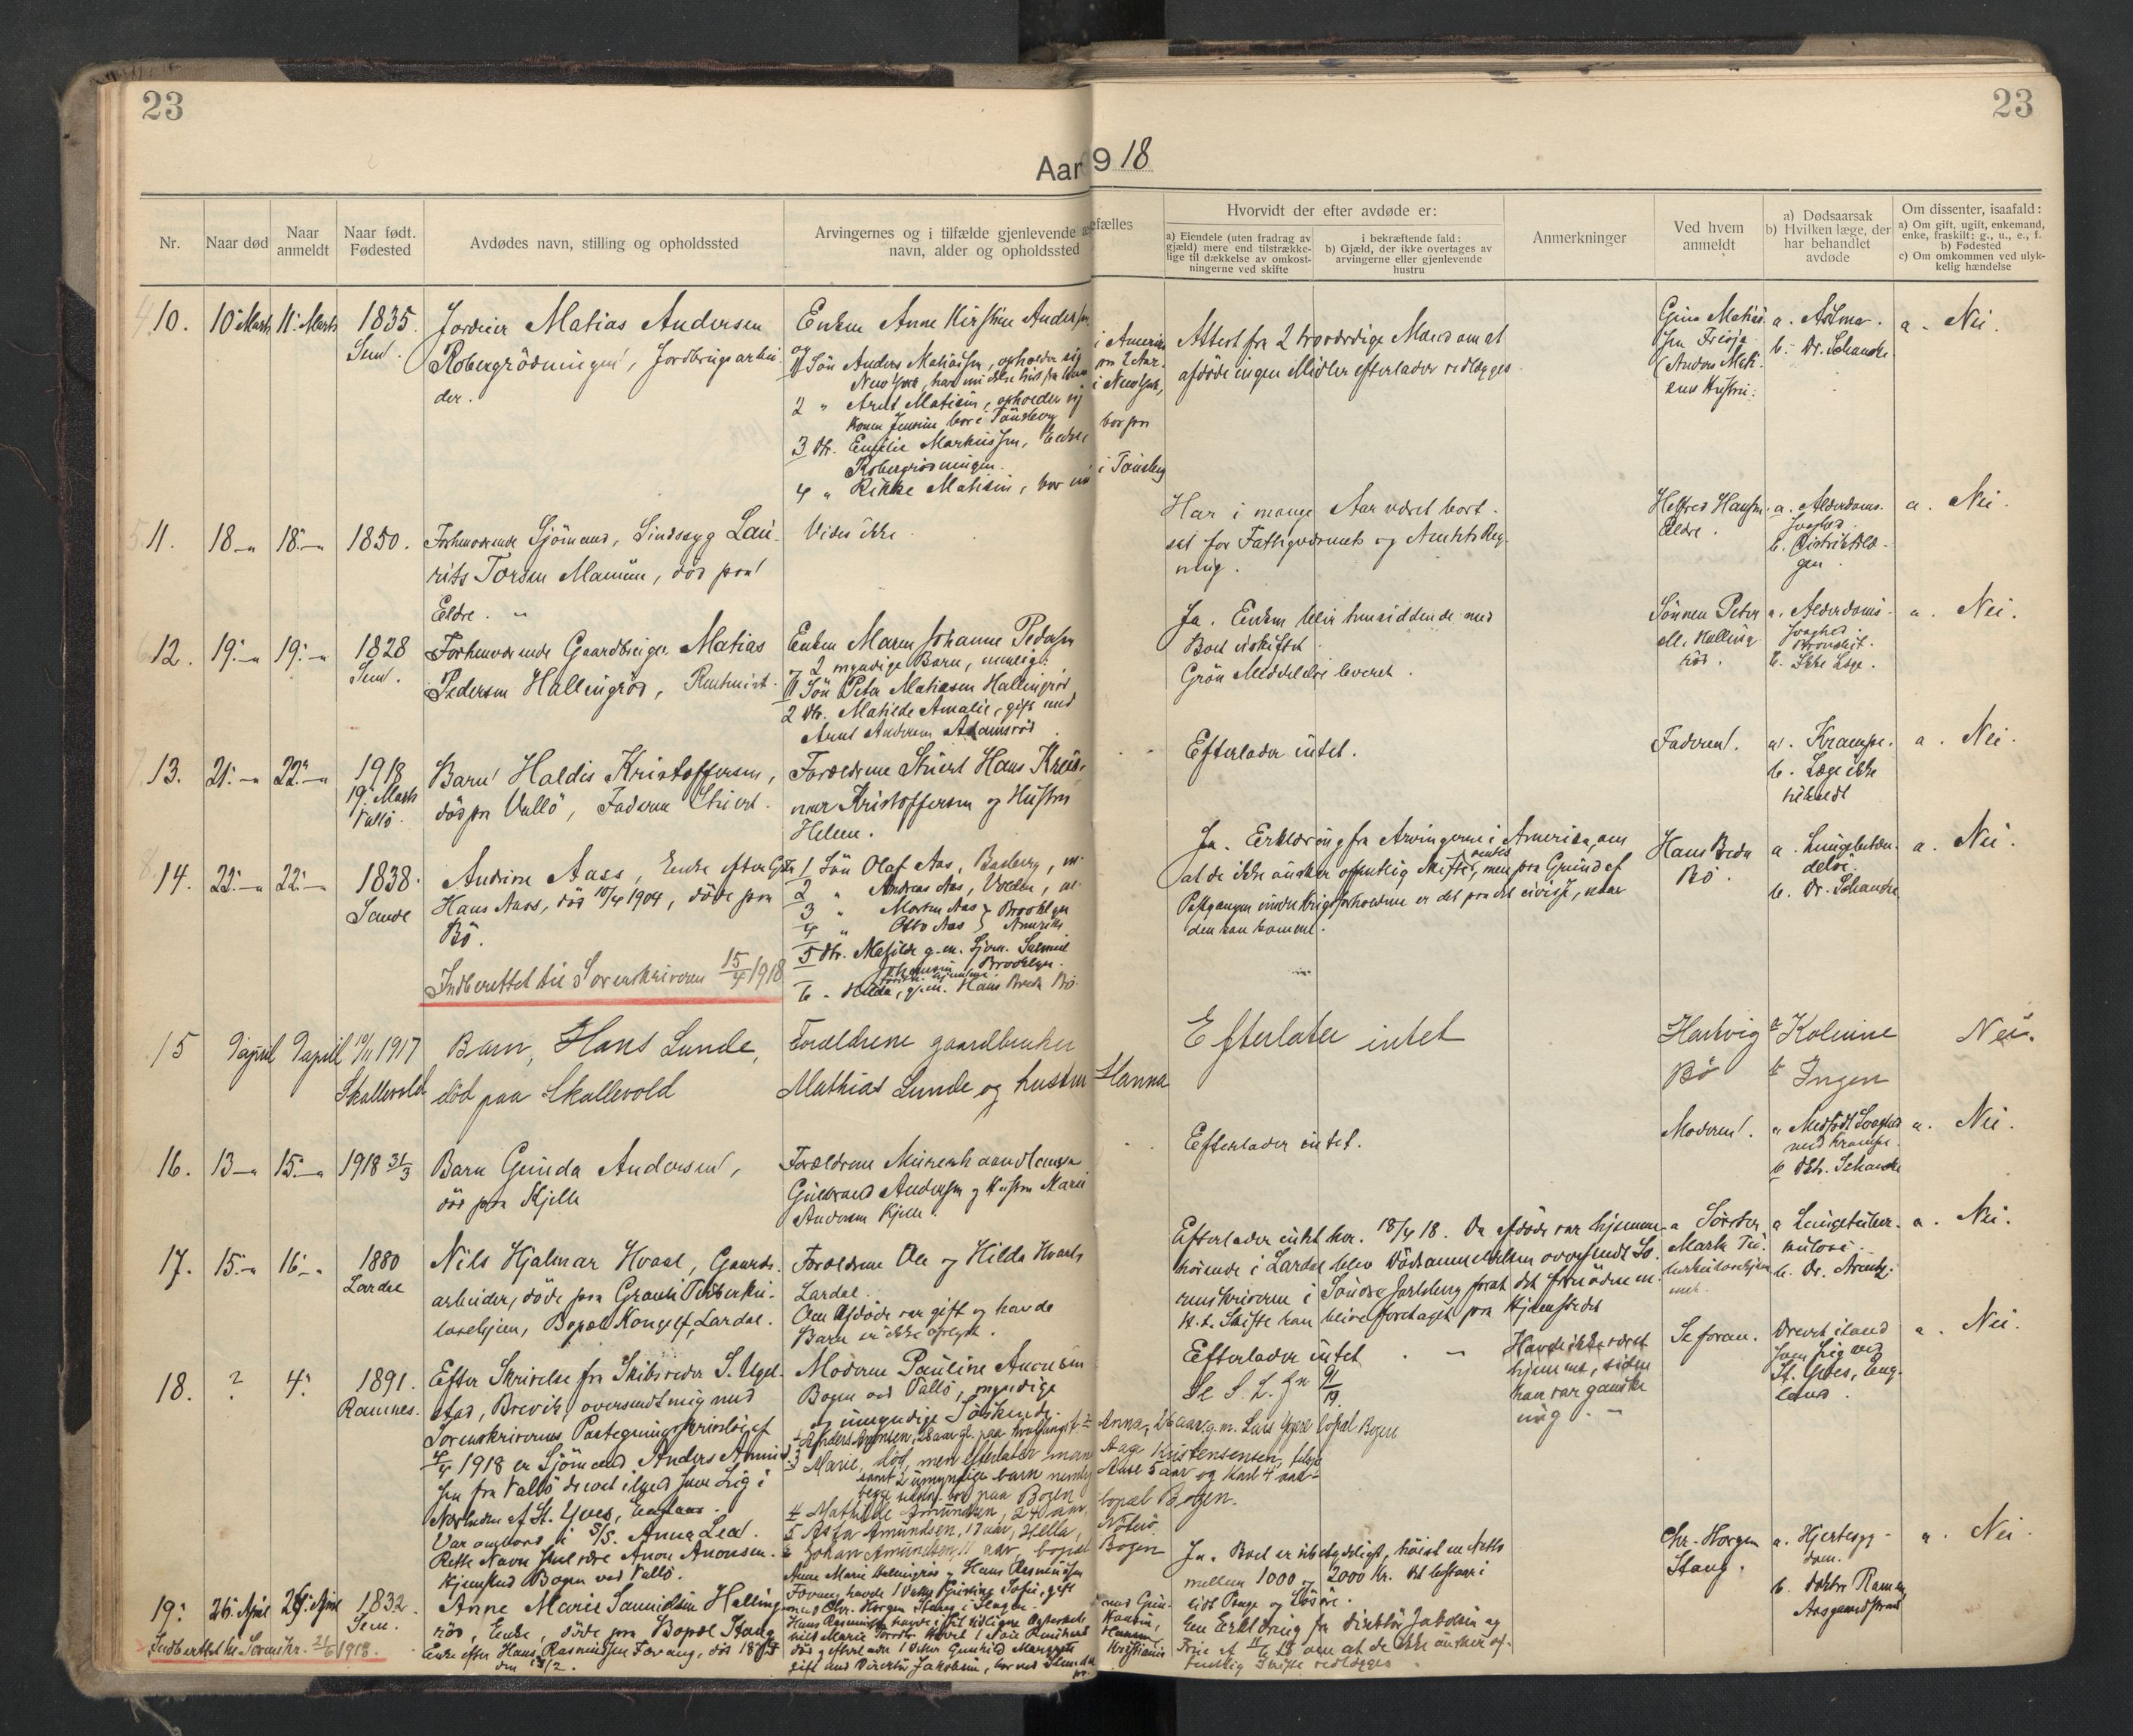 23
23
Aar 1918
Nr.
Naar død
Naar anmeldt
Naar født. Fødested
Avdødes navn, stilling og opholdssted
Arvingernes og i tilfælde gjenlevende ægtefælles
navn, alder og opholdssted
Hvorvidt der efter avdøde er:
a) Eiendele (uten fradrag av
gjæld) mere end tilstrække-
lige til dækkelse av omkost-
ningerne ved skifte
i bekræftende fald:
b) Gjæld, der ikke overtages av
arvingerne eller gjenlevende
hustru
Anmerkninger
Ved hvem
anmeldt
a) Dødsaarsak
b) Hvilken læge, der
har behandlet
avdøde
Om dissenter, isaafald:
a) Om gift, ugift, enkemand,
enke, fraskilt: g., u., e., f.
b) Fødested
c) Om omkommen ved ulyk-
kelig hændelse
10. 10 Marts 11 Marts 1835
Sem.
Jordeier Matias Andersen
Robergrödningen, Jordbrugsarbei-
der.
Enken Anne Kirstine Andersen
og
1 Sön Anders Matiassen, opholder sig i Amerika
2 " Arnt Matisen, opholder sig i New York,
Konen Jensine bor i Tönsberg
3 Dtr. Emilie Markussen, bor paa
Robergrödningen.
4 " Rikke Matisen, bor i Tönsberg
Attest fra 2 troværdige Mænd om at
afdöde ingen Midler efterlader vedlægges
a. Astma.
b. Dr. Schanche
a. Nei.
11. 18 18 1850.
Forhenværende Sjömand, Sindssyg Lau-
rits Torsen Mamen, död paa
Eldre.
Vides ikke
Har i mange Aar været bort-
sat for Fattigvæsenets og Amtets Reg-
ning.
Helfred Hansen
Eldre.
a. Alderdoms-
svaghed.
b. Distriktslæ-
gen.
a. Nei.
12. 19 19 1828
Sem.
Forhenværende Gaardbruger Matias
Pedersen Hallingröd,
Enken Maren Johanne Pedersen
og 2 myndige Barn, nemlig:
1 Sön Peter Matiasen Hallingröd
2 Dtr. Matilde Amalie, gift med
Arnt Andersen Adamsröd
Ja. Enken blir hensiddende med
Boet uskiftet
Grön Meddelelse leveret.
Sönnen Peter
M. Halling-
röd.
a. Alderdoms-
svaghed.
Bronkit.
b. Ikke Læge.
a. Nei.
13. 21 22 1918
19 Marts
Vallö.
Barn Haldis Kristoffersen,
död paa Vallö, Faderen Stuert.
Forældrene Stuert Hans
Kristoffersen og Hustru
Helene.
Efterlader intet.
Faderen.
a. Krampe.
b. Læge ikke
tilkaldt
a. Nei.
14. 22 22 1838
Sande
Andrine Aass, Enke efter
Hans Aass, död 10/4 1904, döde paa
Bö.
Indberettet til Sorenskriveren 15/4 1918
1 Sön Olaf Aas, Basberg,
2 " Andreas Aas,
3 " Morten Aas } Brooklyn
4 " Otto Aas } Amerika
5 Dtr. Matilde g.m. Sjöm.
Brooklyn.
6 " Hilda, g.m. Hans Breda Bö
Ja. Erklæring fra Arvingerne i Amerika, om
at de ikke önsker offentlig Skifte, ventes, men paa Grund af
Postgangen under Krigsforholdene er det paa det uvisse, naar
den kan komme.
Hans Breda
Bö.
a. Lungebetæn-
delse.
b. Dr. Schanche
a. Nei.
15 9 april 9 april 19/11 1917
Skallevold
Barn, Hans Lunde,
död paa Skallevold
Forældrene gaardbruker
Mathias Lunde og hustru Hanna
Efterlater intet
Hartvig
Bö
a Kolerine
b Ingen
Nei.
16. 13 15 1918 31/3
Barn Gunda Andersen,
död paa Kjelle
Forældrene Murerhaandlanger
Guldbrand Andersen og Hustru Marie
Andersen Kjelle.
Efterlader intet.
Moderen.
a Medfödt Svaghed
med Krampe.
b Dtr. Schanche
a. Nei.
17. 15 16 1880
Lardal
Nils Hjalmar Hvaal, Gaards-
arbeider, döde paa Grani Tuberku-
losehjem, Bopæl Kongelf, Lardal.
Forældrene Ole og Hilda Hvaals
Lardal.
Om Afdöde var gift og havde
Barn er ikke oplyst.
Efterlader intet her. 18/4 18. Da afdöde var hjemme-
hörende i Lardal blev Dödsanmeldelsen oversendt So-
renskriveren i Söndre Jarlsberg forat det fornödne m.
H. t. Skifte kan blive foretaget paa Hjemstedet
Söster
Marta Tu-
berkulosehjem-
met.
a Lungetuber-
kulose.
b. Dr. Arentz.
a. Nei.
18. ? 4 1891
Ramnes.
Efter Skrivelse fra Skibsreder S. Ugel-
stad, Brevik, oversendt mig med
Sorenskriverens Paategningsskrivelse af
4/4 1918 er Sjömand Anders
fra Vallö drevet iland som Lig i
Nærheden af St. Yves, England.
Var ombord i S/S. Anna Lea.
Rette Navn skal være Anon Anonsen.
Hjemsted Bogen ved Vallö.
Moderen Pauline
Bogen ved Vallö, myndige
og umyndige Söskende.
Anna, 26 aar g.m. Lars bopæl Bogen
3 Marie, död, men efterlater mann Aage Kristensen,
samt 2 umyndige barn nemlig Aase 5 aar og Karl 4 aar
begge bor paa Bogen bopæl Bogen.
4 Mathilde Amundsen, 24 aar, Nöterö
5 Asta Amundsen, 17 aar, Hella,
6 Johan Amundsen, 11 aar, bopæl Bogen
Efterlader intet
Se S. L. 91/19.
Havde ikke været
hjemme, siden
han var ganske
ung.
Se foran.
Drevet iland
som Lig ved
St. Yves, Eng-
land.
a. Nei.
19. 26 April 26 April 1832
Sem.
Indberettet til Sorenskr. 21/6 1918.
Anne Marie Samuelsen Halling-
röd, Enke, döde paa Bopæl Stang
Enke efter Hans Rasmussen Forvang, död
Ja. Boet er ubetydeligt, höist en Netto
mellem 1000 og 2000 Kr. Det bestaar i
lidt Penge og Lösöre.
En Erklæring fra Direktör Jakobsen og
Frue af 11/6 18 om at de ikke önsker of-
fentlig Skifte vedlægges.
Chr. Horgen
Stang.
a. Hjertesyg-
dom.
b. Doktor Ramm,
Aasgaardstrand
a. Nei.